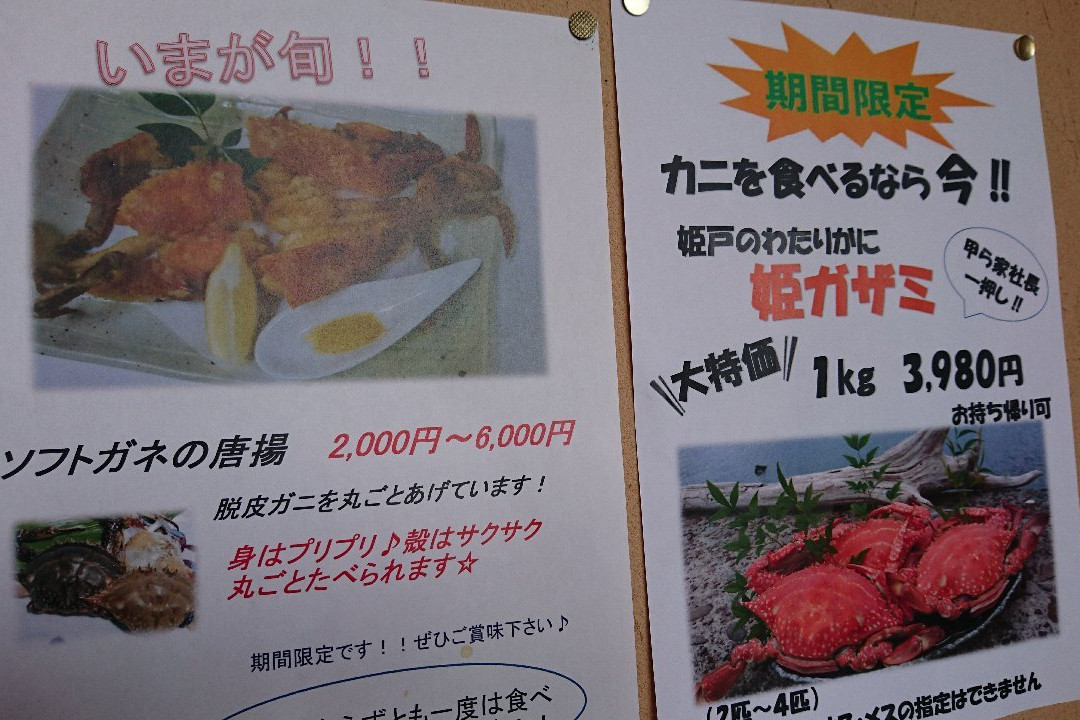 いまが旬！！
ソフトガネの唐揚 2,000円～6,000円
脱皮ガニを丸ごとあげています！
身はプリプリ♪殻はサクサク
丸ごとたべられます☆
期間限定です！！ぜひご賞味下さい♪
ずとも一度は食べ
期間限定
カニを食べるなら今!!
姫戸のわたりがに
姫ガザミ
甲ら家社長
一押し!!
大特価 1kg 3,980円
お持ち帰り可
(2匹～4匹)
メスの指定はできません